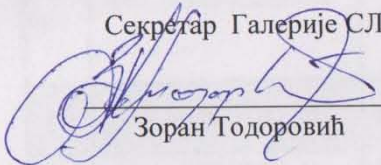 Секретар Галерије СЛ
Зоран Тодоровић